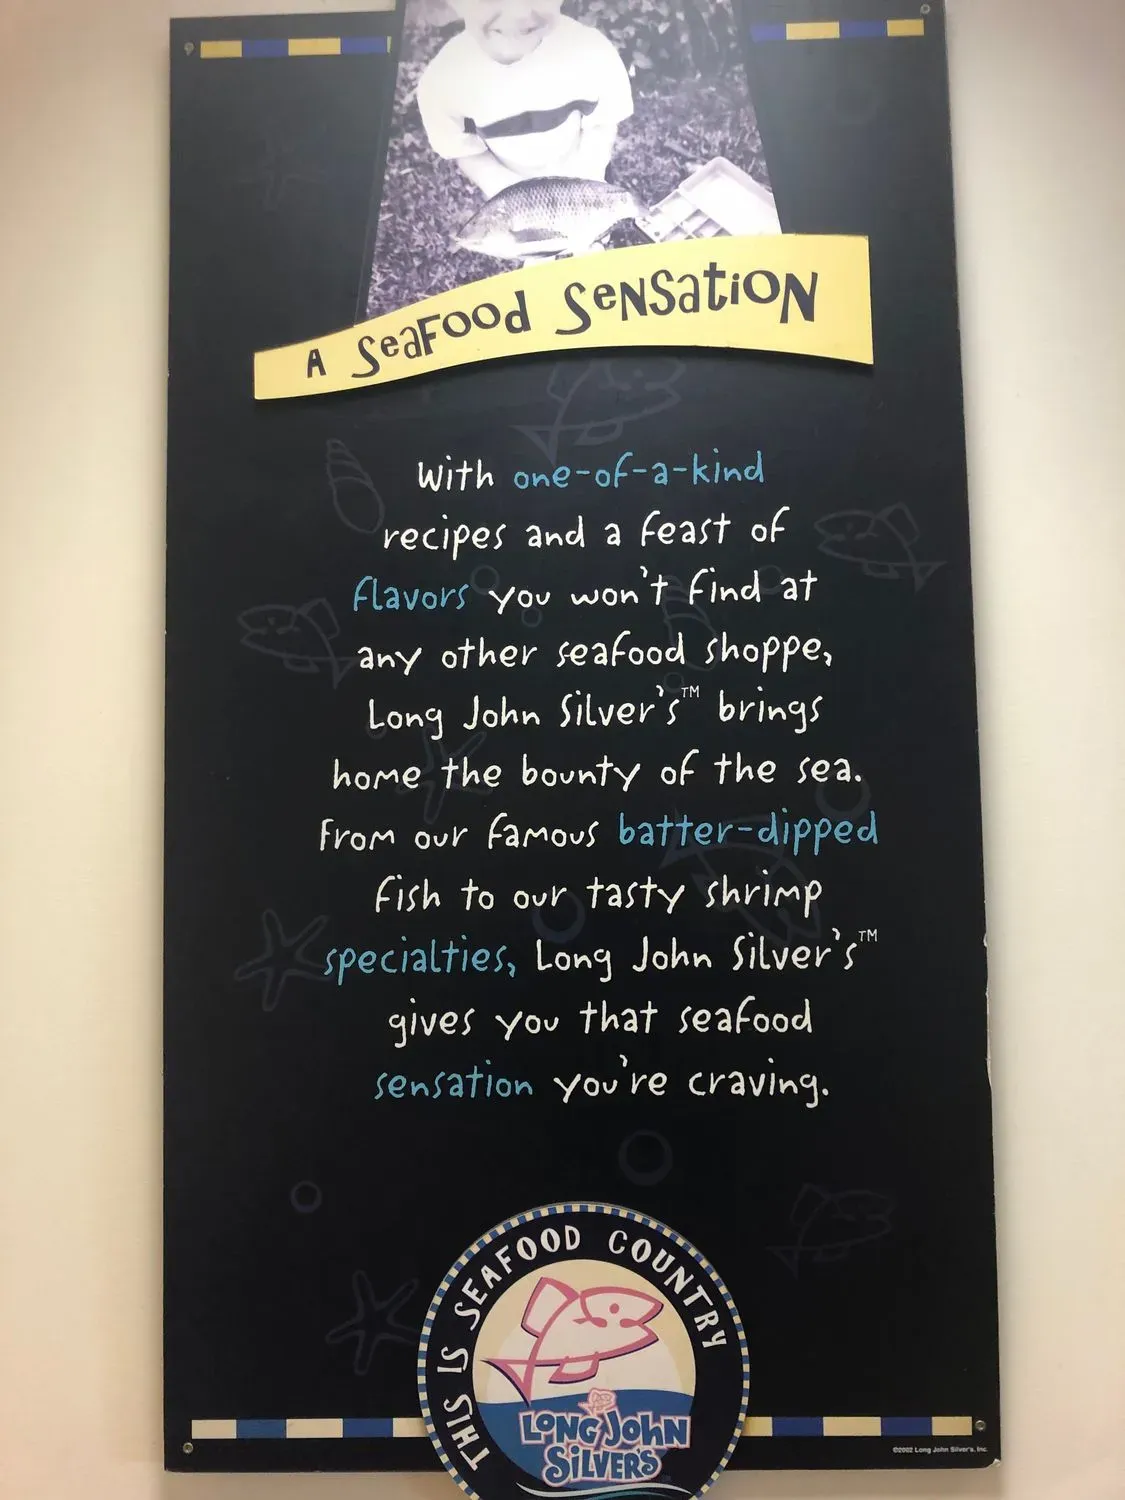 A SeaFood SeNSatiON
With one-of-a-kind
recipes and a feast of
flavors you won't find at
any other seafood shoppe,
Long John Silver's™ brings
home the bounty of the sea.
From our famous batter-dipped
fish to our tasty shrimp
specialties, Long John Silver's™
gives you that seafood
sensation you're craving.
THIS IS SEAFOOD COUNTRY
LONG JOHN
SILVER'S
©2002 Long John Silver's, Inc.